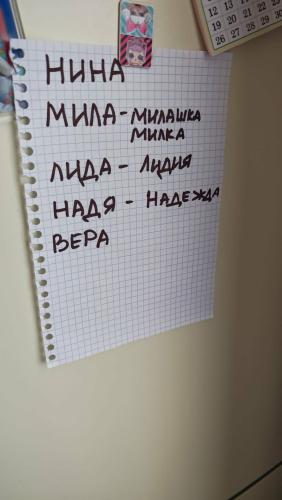 НИНА
МИЛА - МИЛАШКА
МИЛКА
ЛИДА - ЛИДИЯ
НАДЯ - НАДЕЖДА
ВЕРА
12 13 14
19 20 21
26 27 28